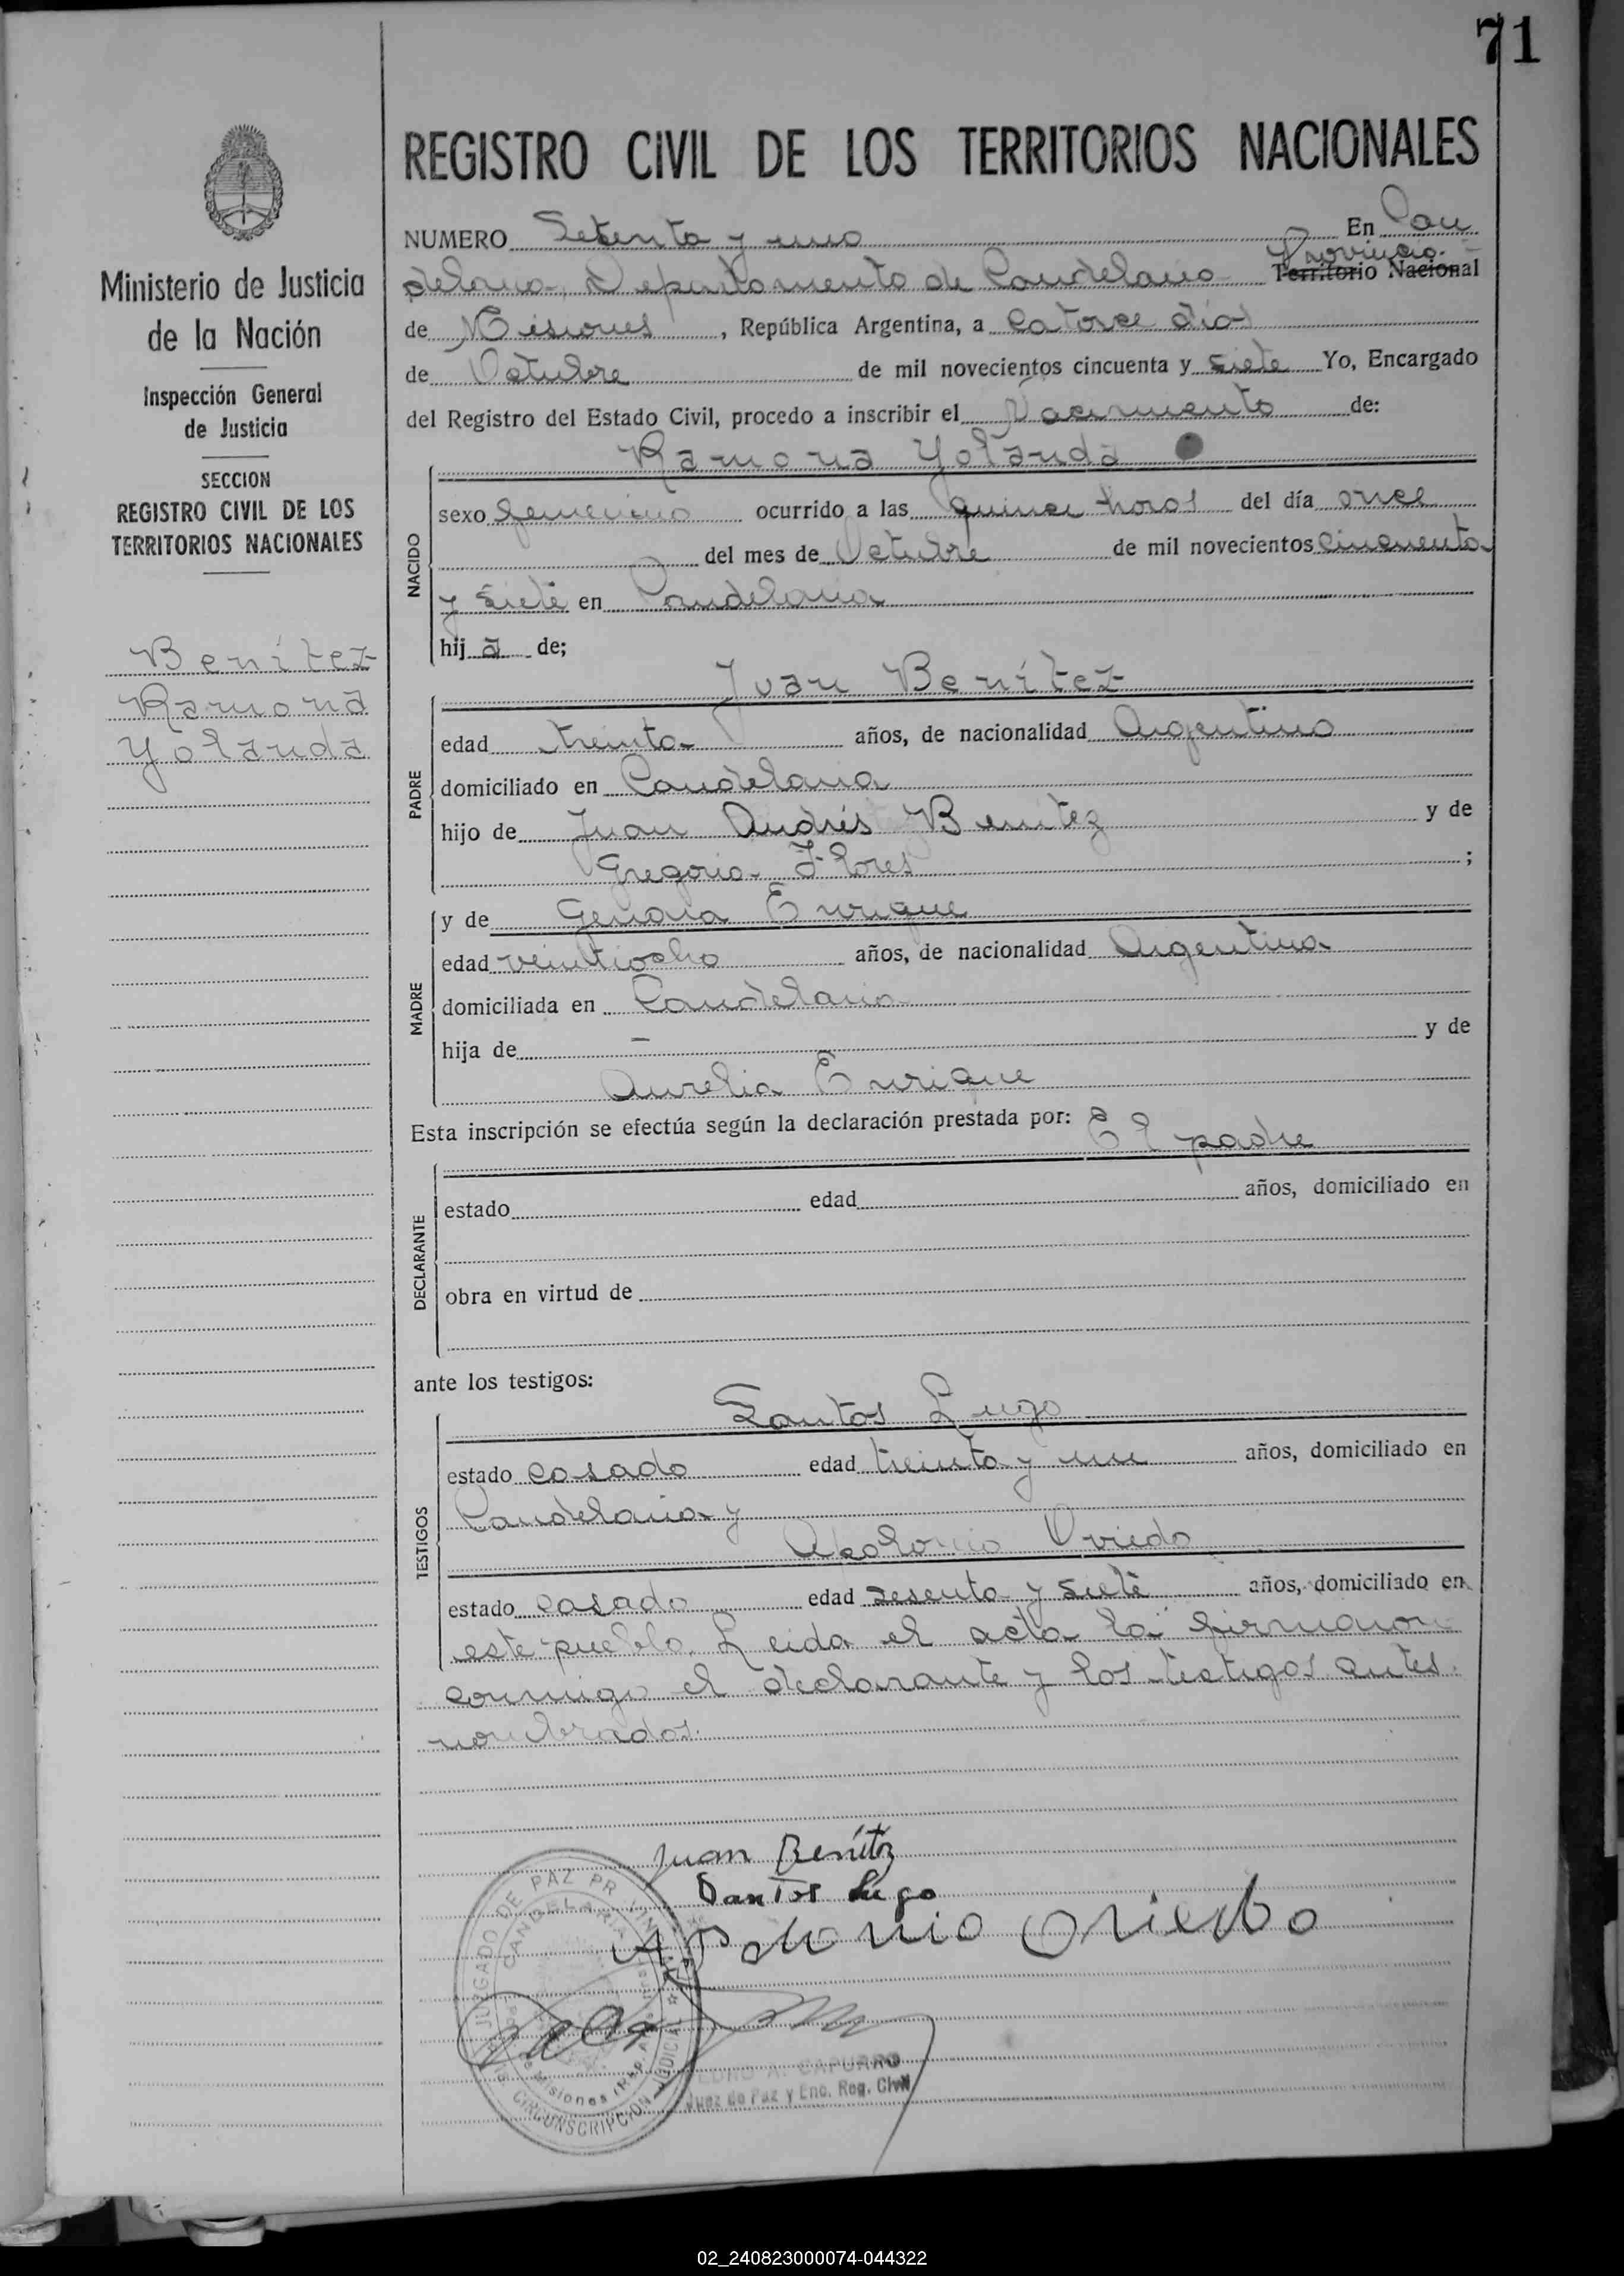 71
REGISTRO CIVIL DE LOS TERRITORIOS NACIONALES
Ministerio de Justicia
de la Nación
Inspección General
de Justicia
SECCION
REGISTRO CIVIL DE LOS
TERRITORIOS NACIONALES
Benítez
Ramona
Yolanda
NUMERO Setenta y uno En Can
Provincia
delaria, Departamento de Candelaria Territorio Nacional
de Misiones, República Argentina, a catorce días
de Octubre de mil novecientos cincuenta y siete Yo, Encargado
del Registro del Estado Civil, procedo a inscribir el Nacimiento de:
Ramona Yolanda
NACIDO
sexo femenino ocurrido a las quince horas del día once
del mes de Octubre de mil novecientos cincuenta
y siete en Candelaria
hij a de;
Juan Benítez
PADRE
edad treinta años, de nacionalidad Argentino
domiciliado en Candelaria
hijo de Juan Andrés Benitez y de
Gregoria Flores ;
MADRE
y de Genara Enrique
edad veintiocho años, de nacionalidad Argentina
domiciliada en Candelaria
hija de – y de
Aurelia Enrique
Esta inscripción se efectúa según la declaración prestada por: El padre
DECLARANTE
estado edad años, domiciliado en
obra en virtud de
ante los testigos:
Santos Lugo
TESTIGOS
estado casado edad treinta y un años, domiciliado en
Candelaria y
Apolonio Oviedo
estado casado edad sesenta y siete años, domiciliado en
este pueblo. Leida el acta la firmaron
conmigo el declarante y los testigos antes
nombrados.
Juan Benítez
Santos Lugo
Apolonio Oviedo
JUZGADO DE PAZ
CANDELARIA
Misiones
CIRCUNSCRIPCION JUDICIAL
A. CAPURRO
Juez de Paz y Enc. Reg. Civil
02_240823000074-044322